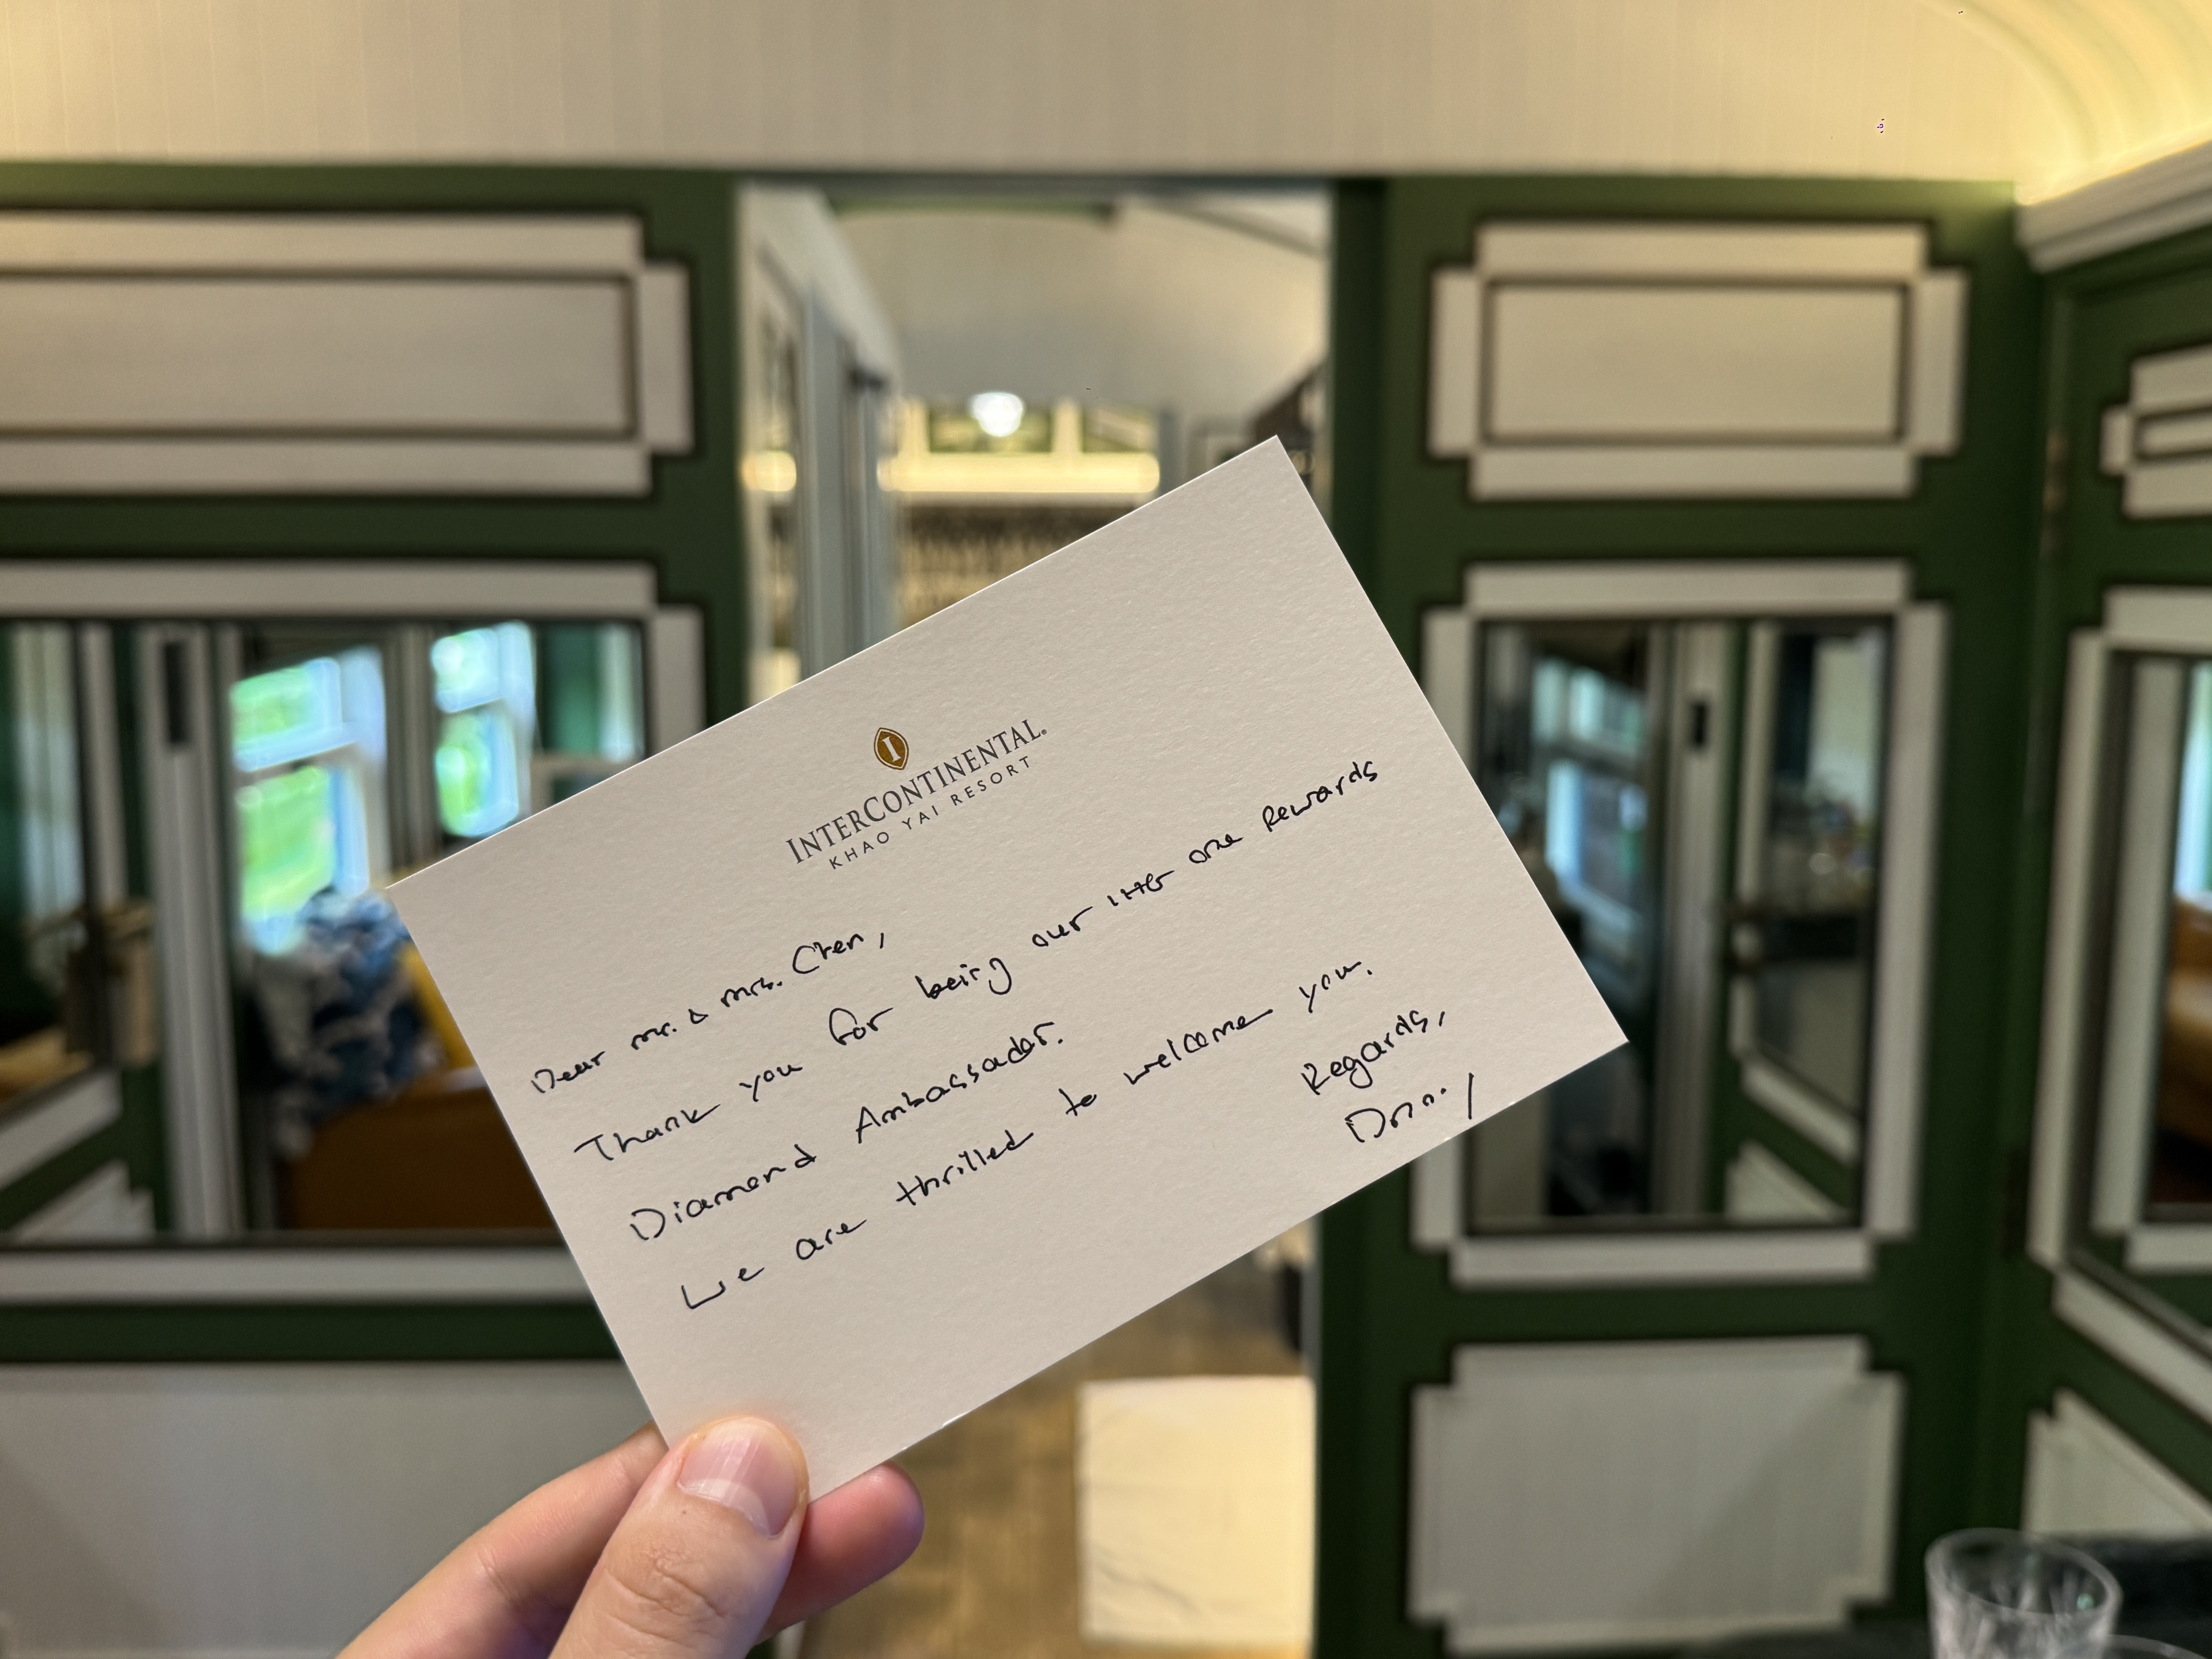 I
INTERCONTINENTAL®
KHAO YAI RESORT
Dear mr. & mrs. Chen,
Thank you for being our IHG one Rewards
Diamond Ambassador.
We are thrilled to welcome you.
Regards,